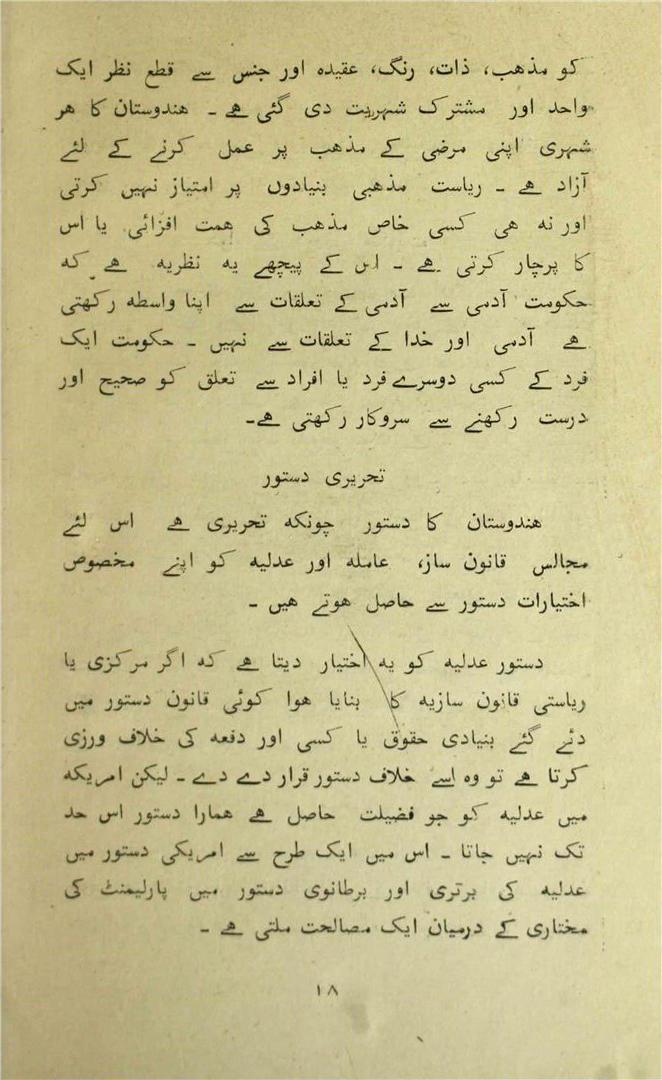 کو مذہب، ذات، رنگ، عقیدہ اور جنس سے قطع نظر ایک
واحد اور مشترک شہریت دی گئی ہے ۔ ہندوستان کا ہر
شہری اپنی مرضی کے مذہب پر عمل کرنے کے لئے
آزاد ہے ۔ ریاست مذہبی بنیادوں پر امتیاز نہیں کرتی
اور نہ ہی کسی خاص مذہب کی ہمت افزائی یا اس
کا پرچار کرتی ہے ۔ اس کے پیچھے یہ نظریہ ہے کہ
حکومت آدمی سے آدمی کے تعلقات سے اپنا واسطہ رکھتی
ہے آدمی اور خدا کے تعلقات سے نہیں ۔ حکومت ایک
فرد کے کسی دوسرے فرد یا افراد سے تعلق کو صحیح اور
درست رکھنے سے سروکار رکھتی ہے۔
تحریری دستور
ہندوستان کا دستور چونکہ تحریری ہے اس لئے
مجالس قانون ساز، عاملہ اور عدلیہ کو اپنے مخصوص
اختیارات دستور سے حاصل ہوتے ہیں ۔
دستور عدلیہ کو یہ اختیار دیتا ہے کہ اگر مرکزی یا
ریاستی قانون سازیہ کا بنایا ہوا کوئی قانون دستور میں
دئے گئے بنیادی حقوق یا کسی اور دفعہ کی خلاف ورزی
کرتا ہے تو وہ اسے خلاف دستور قرار دے دے ۔ لیکن امریکہ
میں عدلیہ کو جو فضیلت حاصل ہے ہمارا دستور اس حد
تک نہیں جاتا ۔ اس میں ایک طرح سے امریکی دستور میں
عدلیہ کی برتری اور برطانوی دستور میں پارلیمنٹ کی
مختاری کے درمیان ایک مصالحت ملتی ہے ۔
۱۸